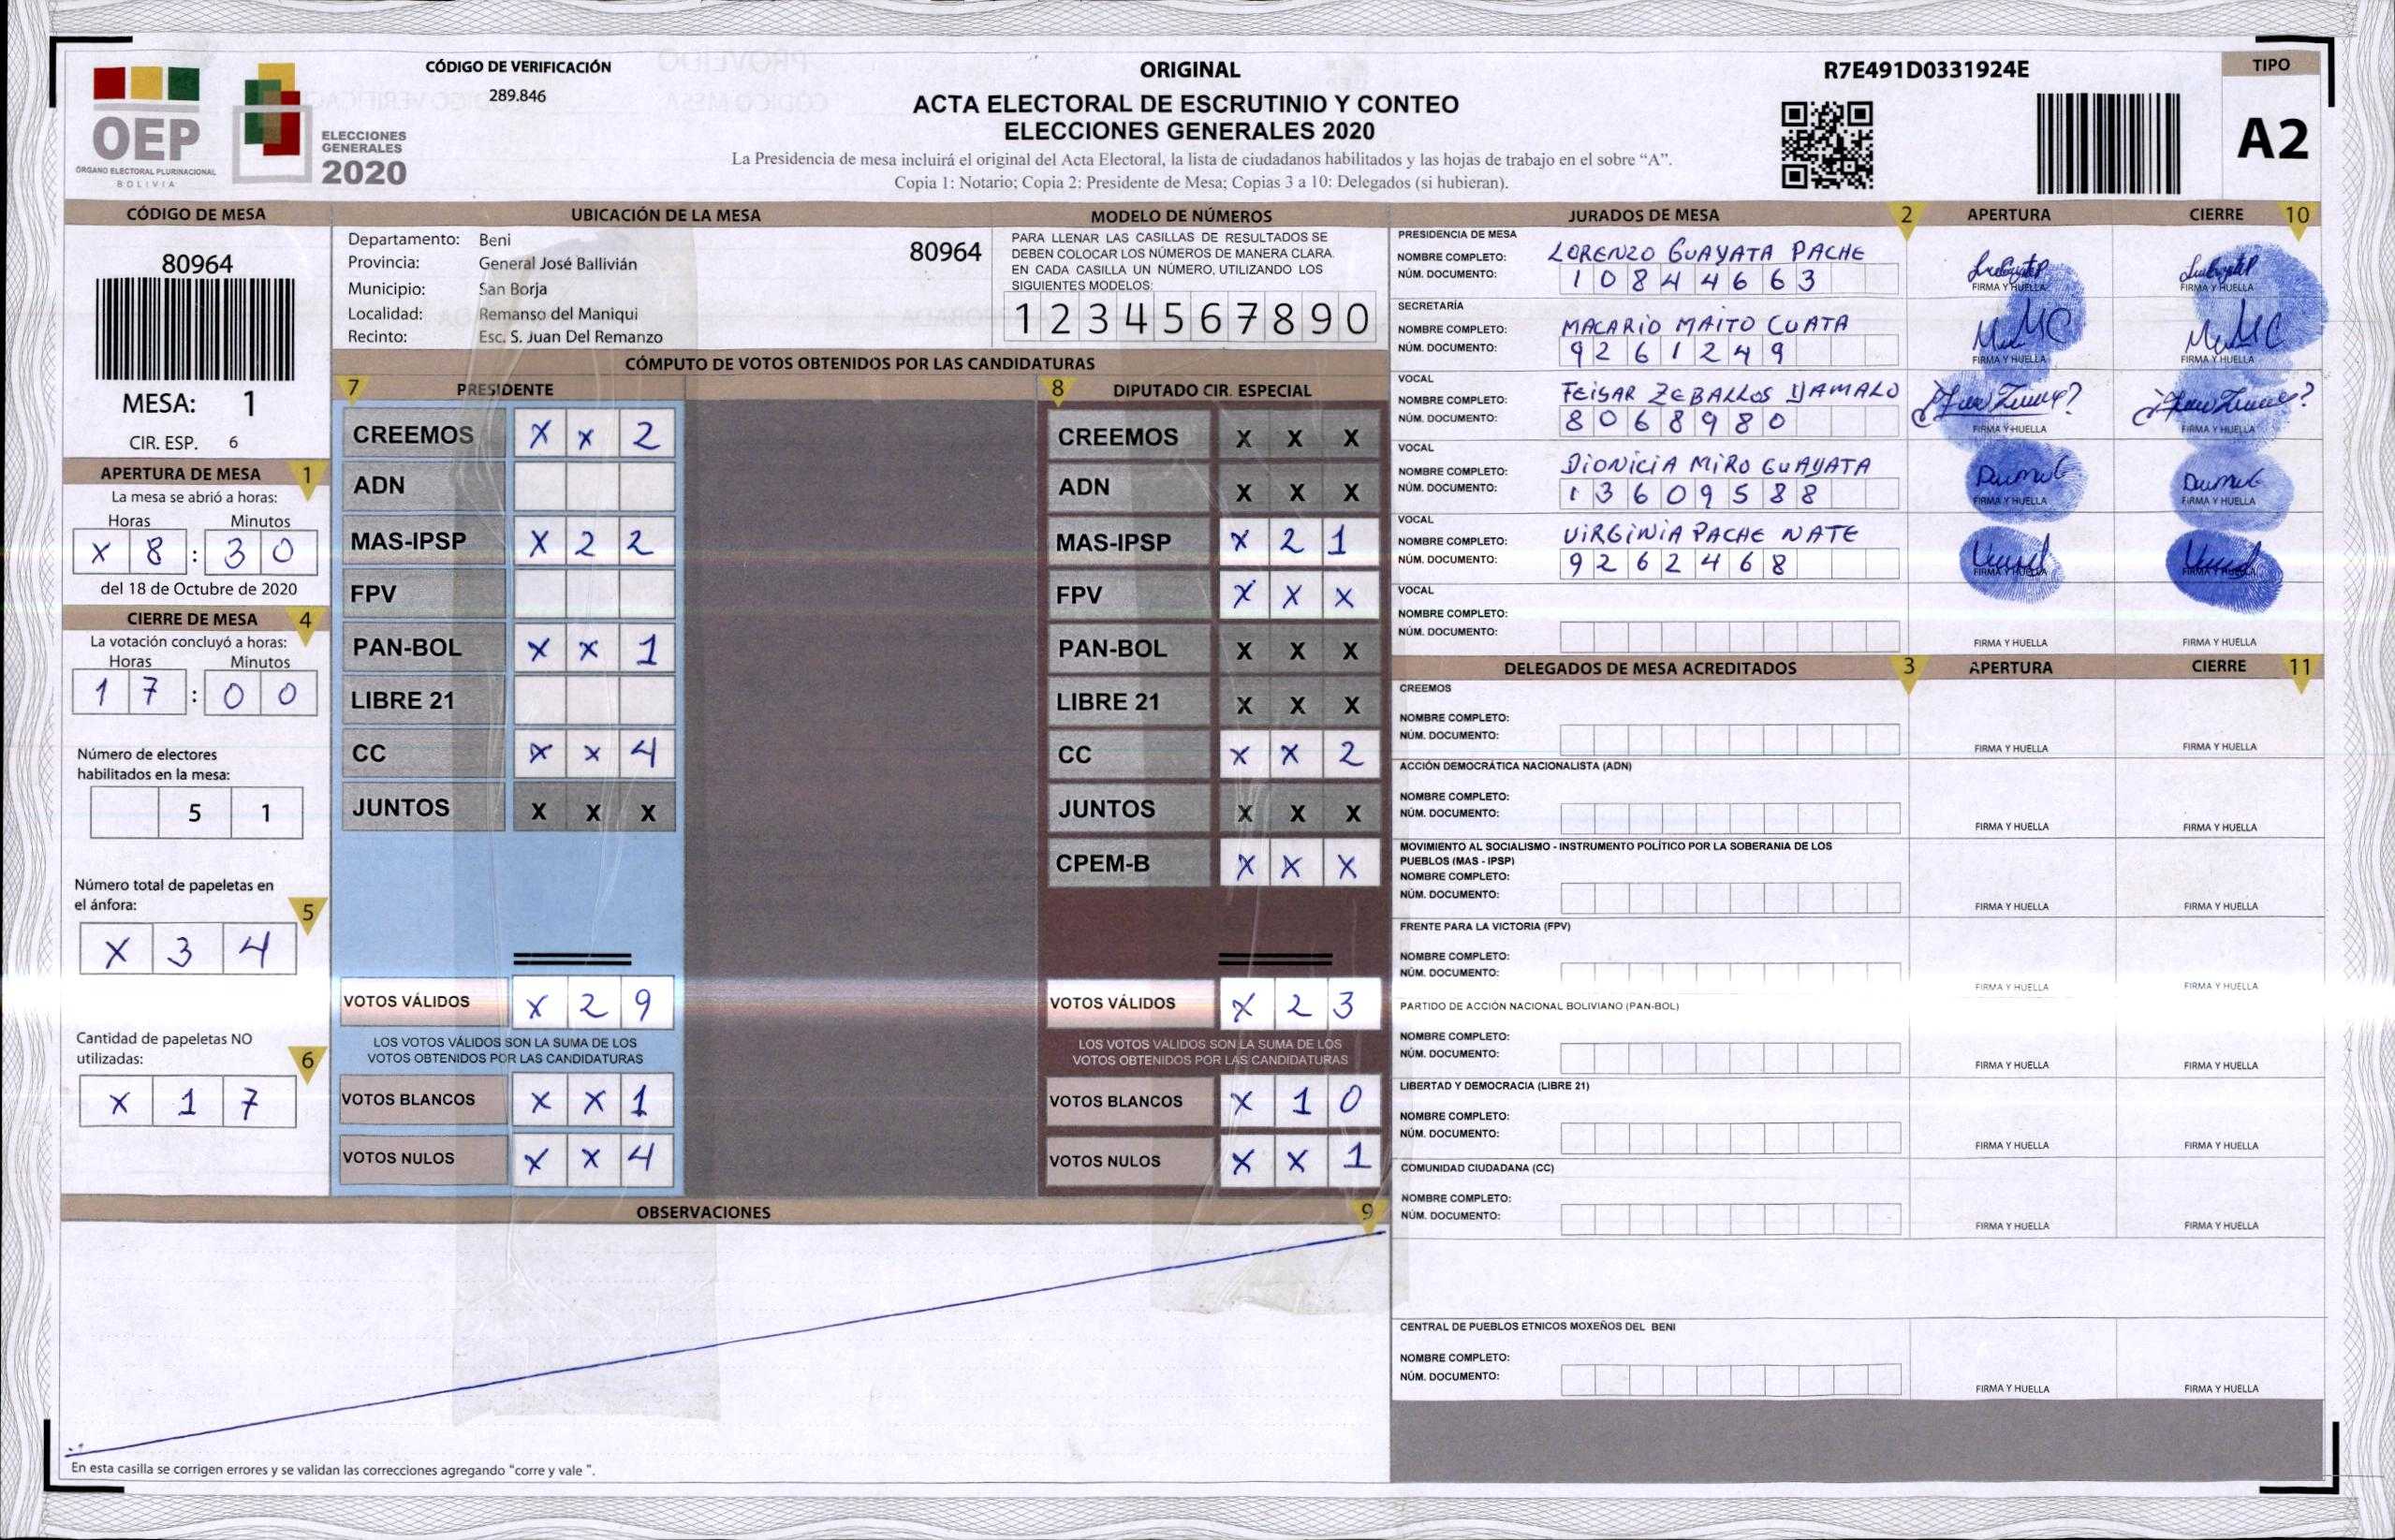 CÓDIGO DE VERIFICACIÓN
289.846
OEP
ÓRGANO ELECTORAL PLURINACIONAL
BOLIVIA
ELECCIONES
GENERALES
2020
ORIGINAL
ACTA ELECTORAL DE ESCRUTINIO Y CONTEO
ELECCIONES GENERALES 2020
La Presidencia de mesa incluirá el original del Acta Electoral, la lista de ciudadanos habilitados y las hojas de trabajo en el sobre “A”.
Copia 1: Notario; Copia 2: Presidente de Mesa; Copias 3 a 10: Delegados (si hubieran).
R7E491D0331924E
TIPO
A2
CÓDIGO DE MESA
80964
MESA: 1
CIR. ESP. 6
APERTURA DE MESA 1
La mesa se abrió a horas:
Horas Minutos
X 8 : 3 0
del 18 de Octubre de 2020
CIERRE DE MESA 4
La votación concluyó a horas:
Horas Minutos
1 7 : 0 0
Número de electores
habilitados en la mesa:
5 1
Número total de papeletas en
el ánfora: 5
X 3 4
Cantidad de papeletas NO
utilizadas: 6
X 1 7
UBICACIÓN DE LA MESA
Departamento: Beni 80964
Provincia: General José Ballivián
Municipio: San Borja
Localidad: Remanso del Maniqui
Recinto: Esc. S. Juan Del Remanzo
MODELO DE NÚMEROS
PARA LLENAR LAS CASILLAS DE RESULTADOS SE
DEBEN COLOCAR LOS NÚMEROS DE MANERA CLARA.
EN CADA CASILLA UN NÚMERO, UTILIZANDO LOS
SIGUIENTES MODELOS:
1 2 3 4 5 6 7 8 9 0
CÓMPUTO DE VOTOS OBTENIDOS POR LAS CANDIDATURAS
7 PRESIDENTE
CREEMOS X X 2
ADN
MAS-IPSP X 2 2
FPV
PAN-BOL X X 1
LIBRE 21
CC X X 4
JUNTOS X X X
VOTOS VÁLIDOS X 2 9
LOS VOTOS VÁLIDOS SON LA SUMA DE LOS
VOTOS OBTENIDOS POR LAS CANDIDATURAS
VOTOS BLANCOS X X 1
VOTOS NULOS X X 4
8 DIPUTADO CIR. ESPECIAL
CREEMOS X X X
ADN X X X
MAS-IPSP X 2 1
FPV X X X
PAN-BOL X X X
LIBRE 21 X X X
CC X X 2
JUNTOS X X X
CPEM-B X X X
VOTOS VÁLIDOS X 2 3
LOS VOTOS VÁLIDOS SON LA SUMA DE LOS
VOTOS OBTENIDOS POR LAS CANDIDATURAS
VOTOS BLANCOS X 1 0
VOTOS NULOS X X 1
OBSERVACIONES 9
En esta casilla se corrigen errores y se validan las correcciones agregando “corre y vale ”.
JURADOS DE MESA 2 APERTURA CIERRE 10
PRESIDENCIA DE MESA
NOMBRE COMPLETO: LORENZO GUAYATA PACHE
NÚM. DOCUMENTO: 1 0 8 4 4 6 6 3
FIRMA Y HUELLA FIRMA Y HUELLA
SECRETARÍA
NOMBRE COMPLETO: MACARIO MAITO CUATA
NÚM. DOCUMENTO: 9 2 6 1 2 4 9
FIRMA Y HUELLA FIRMA Y HUELLA
VOCAL
NOMBRE COMPLETO: FEISAR ZEBALLOS YAMALO
NÚM. DOCUMENTO: 8 0 6 8 9 8 0
FIRMA Y HUELLA FIRMA Y HUELLA
VOCAL
NOMBRE COMPLETO: DIONICIA MIRO GUAYATA
NÚM. DOCUMENTO: 1 3 6 0 9 5 8 8
FIRMA Y HUELLA FIRMA Y HUELLA
VOCAL
NOMBRE COMPLETO: VIRGINIA PACHE NATE
NÚM. DOCUMENTO: 9 2 6 2 4 6 8
FIRMA Y HUELLA FIRMA Y HUELLA
VOCAL
NOMBRE COMPLETO:
NÚM. DOCUMENTO:
FIRMA Y HUELLA FIRMA Y HUELLA
DELEGADOS DE MESA ACREDITADOS 3 APERTURA CIERRE 11
CREEMOS
NOMBRE COMPLETO:
NÚM. DOCUMENTO:
FIRMA Y HUELLA FIRMA Y HUELLA
ACCIÓN DEMOCRÁTICA NACIONALISTA (ADN)
NOMBRE COMPLETO:
NÚM. DOCUMENTO:
FIRMA Y HUELLA FIRMA Y HUELLA
MOVIMIENTO AL SOCIALISMO - INSTRUMENTO POLÍTICO POR LA SOBERANIA DE LOS
PUEBLOS (MAS - IPSP)
NOMBRE COMPLETO:
NÚM. DOCUMENTO:
FIRMA Y HUELLA FIRMA Y HUELLA
FRENTE PARA LA VICTORIA (FPV)
NOMBRE COMPLETO:
NÚM. DOCUMENTO:
FIRMA Y HUELLA FIRMA Y HUELLA
PARTIDO DE ACCIÓN NACIONAL BOLIVIANO (PAN-BOL)
NOMBRE COMPLETO:
NÚM. DOCUMENTO:
FIRMA Y HUELLA FIRMA Y HUELLA
LIBERTAD Y DEMOCRACIA (LIBRE 21)
NOMBRE COMPLETO:
NÚM. DOCUMENTO:
FIRMA Y HUELLA FIRMA Y HUELLA
COMUNIDAD CIUDADANA (CC)
NOMBRE COMPLETO:
NÚM. DOCUMENTO:
FIRMA Y HUELLA FIRMA Y HUELLA
CENTRAL DE PUEBLOS ETNICOS MOXEÑOS DEL BENI
NOMBRE COMPLETO:
NÚM. DOCUMENTO:
FIRMA Y HUELLA FIRMA Y HUELLA